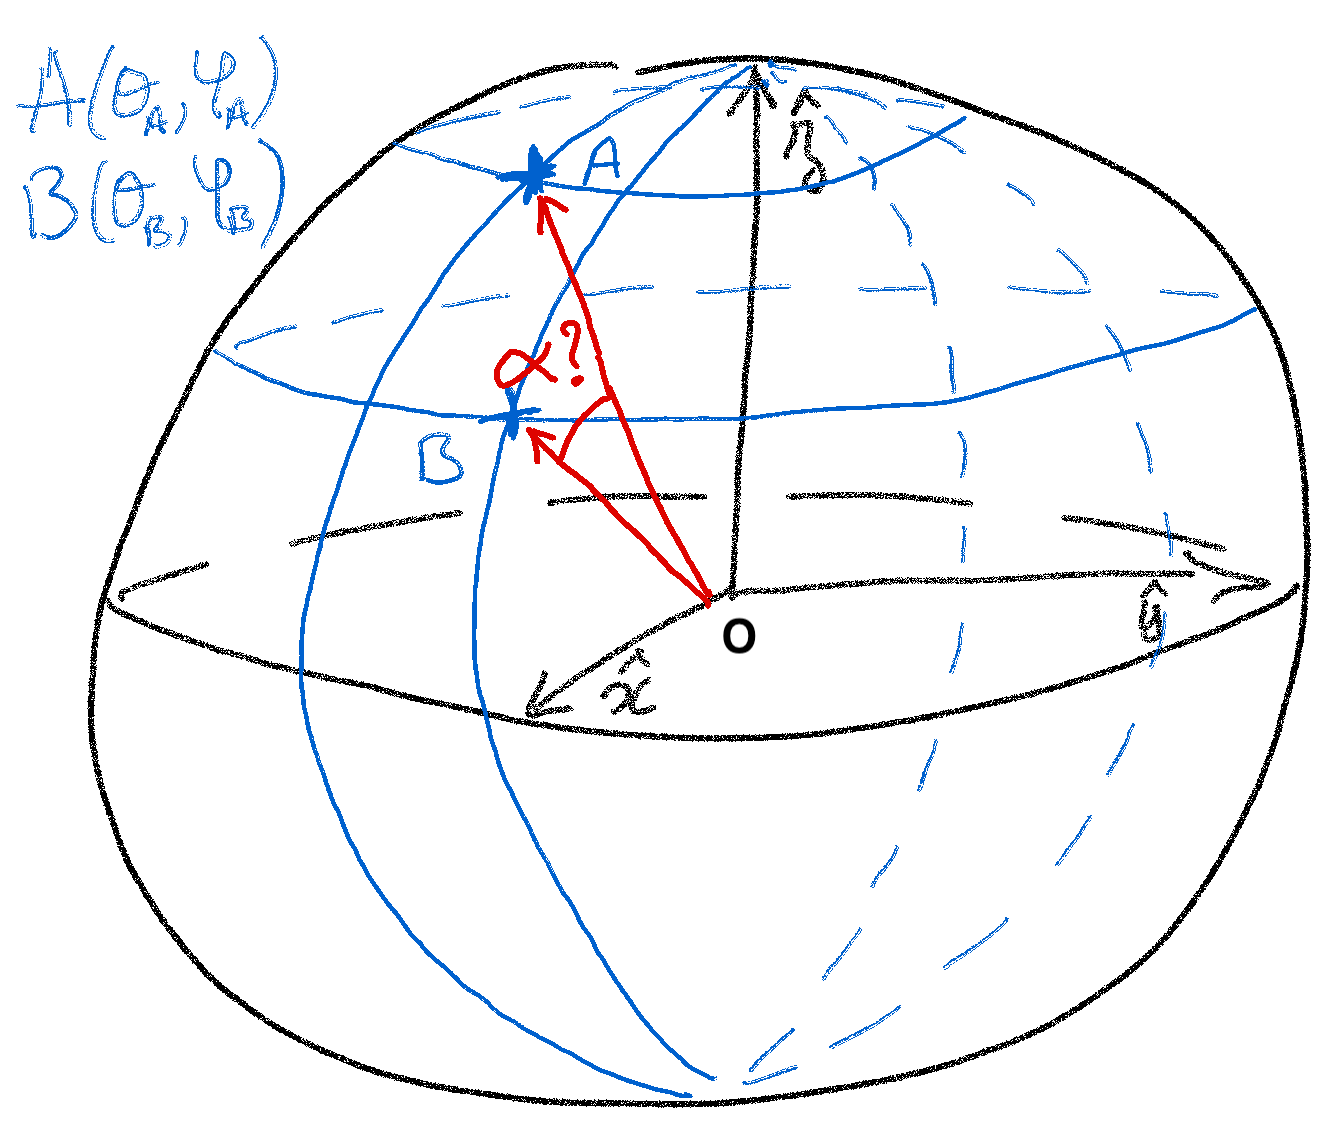 A(θ_A, φ_A)
B(θ_B, φ_B)
A
ẑ
α?
B
O
ŷ
x̂